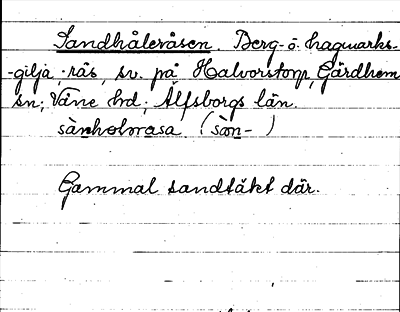 Sandhåleråsen. Berg- o. hagmarks-
-gilja, -rås, sv. på Halvorstorp, Gärdhem
sn; Väne hd; Älfsborgs län.
sànholoråsa (sàn- )
Gammal sandtäkt där.